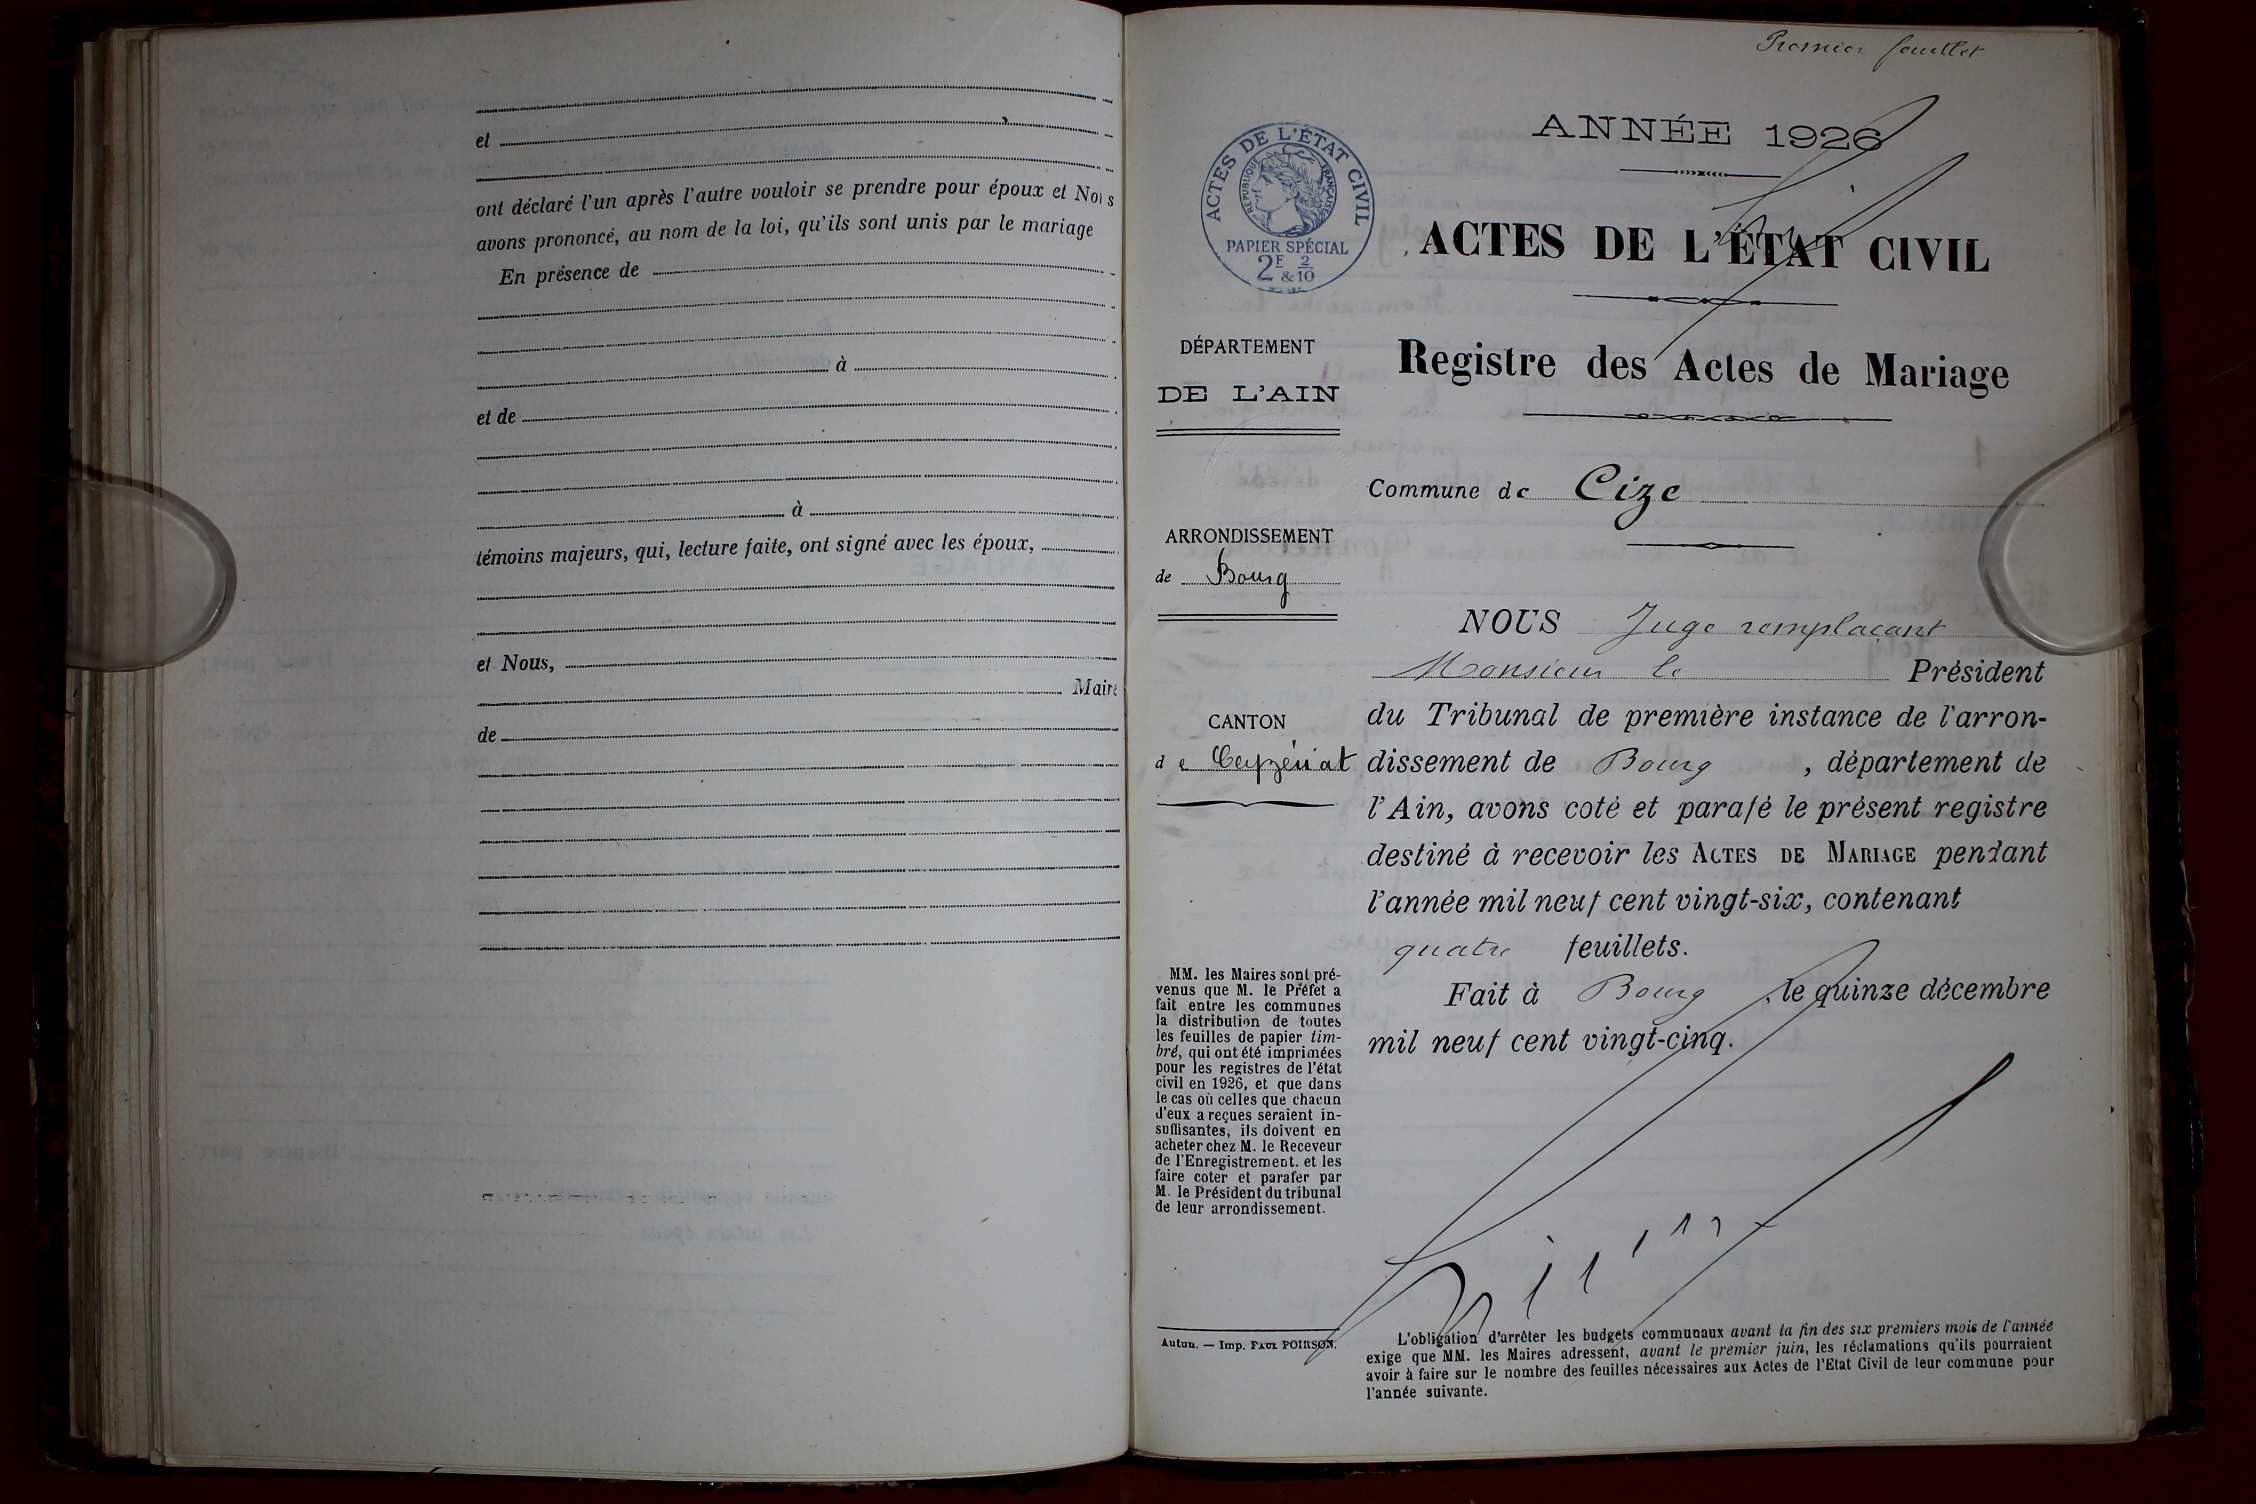 et
ont déclaré l'un après l'autre vouloir se prendre pour époux et Nous
avons prononcé, au nom de la loi, qu'ils sont unis par le mariage
En présence de
à
et de
à
témoins majeurs, qui, lecture faite, ont signé avec les époux,
et Nous,
Maire
de
Premier feuillet
ANNÉE 1926
ACTES DE L'ÉTAT CIVIL
RÉPUBLIQUE FRANÇAISE
PAPIER SPÉCIAL
2F & 2/10
ACTES DE L'ÉTAT CIVIL
Registre des Actes de Mariage
DÉPARTEMENT
DE L'AIN
Commune de Cize
ARRONDISSEMENT
de Bourg
CANTON
de Ceyzériat
NOUS Juge remplaçant
Monsieur le Président
du Tribunal de première instance de l'arron-
dissement de Bourg, département de
l'Ain, avons coté et parafé le présent registre
destiné à recevoir les ACTES DE MARIAGE pendant
l'année mil neuf cent vingt-six, contenant
quatre feuillets.
Fait à Bourg, le quinze décembre
mil neuf cent vingt-cinq.
MM. les Maires sont pré-
venus que M. le Préfet a
fait entre les communes
la distribution de toutes
les feuilles de papier tim-
bré, qui ont été imprimées
pour les registres de l'état
civil en 1926, et que dans
le cas où celles que chacun
d'eux a reçues seraient in-
suffisantes, ils doivent en
acheter chez M. le Receveur
de l'Enregistrement. et les
faire coter et parafer par
M. le Président du tribunal
de leur arrondissement.
Autun. — Imp. PAUL POIRSON.
L'obligation d'arrêter les budgets communaux avant la fin des six premiers mois de l'année
exige que MM. les Maires adressent, avant le premier juin, les réclamations qu'ils pourraient
avoir à faire sur le nombre des feuilles nécessaires aux Actes de l'Etat Civil de leur commune pour
l'année suivante.